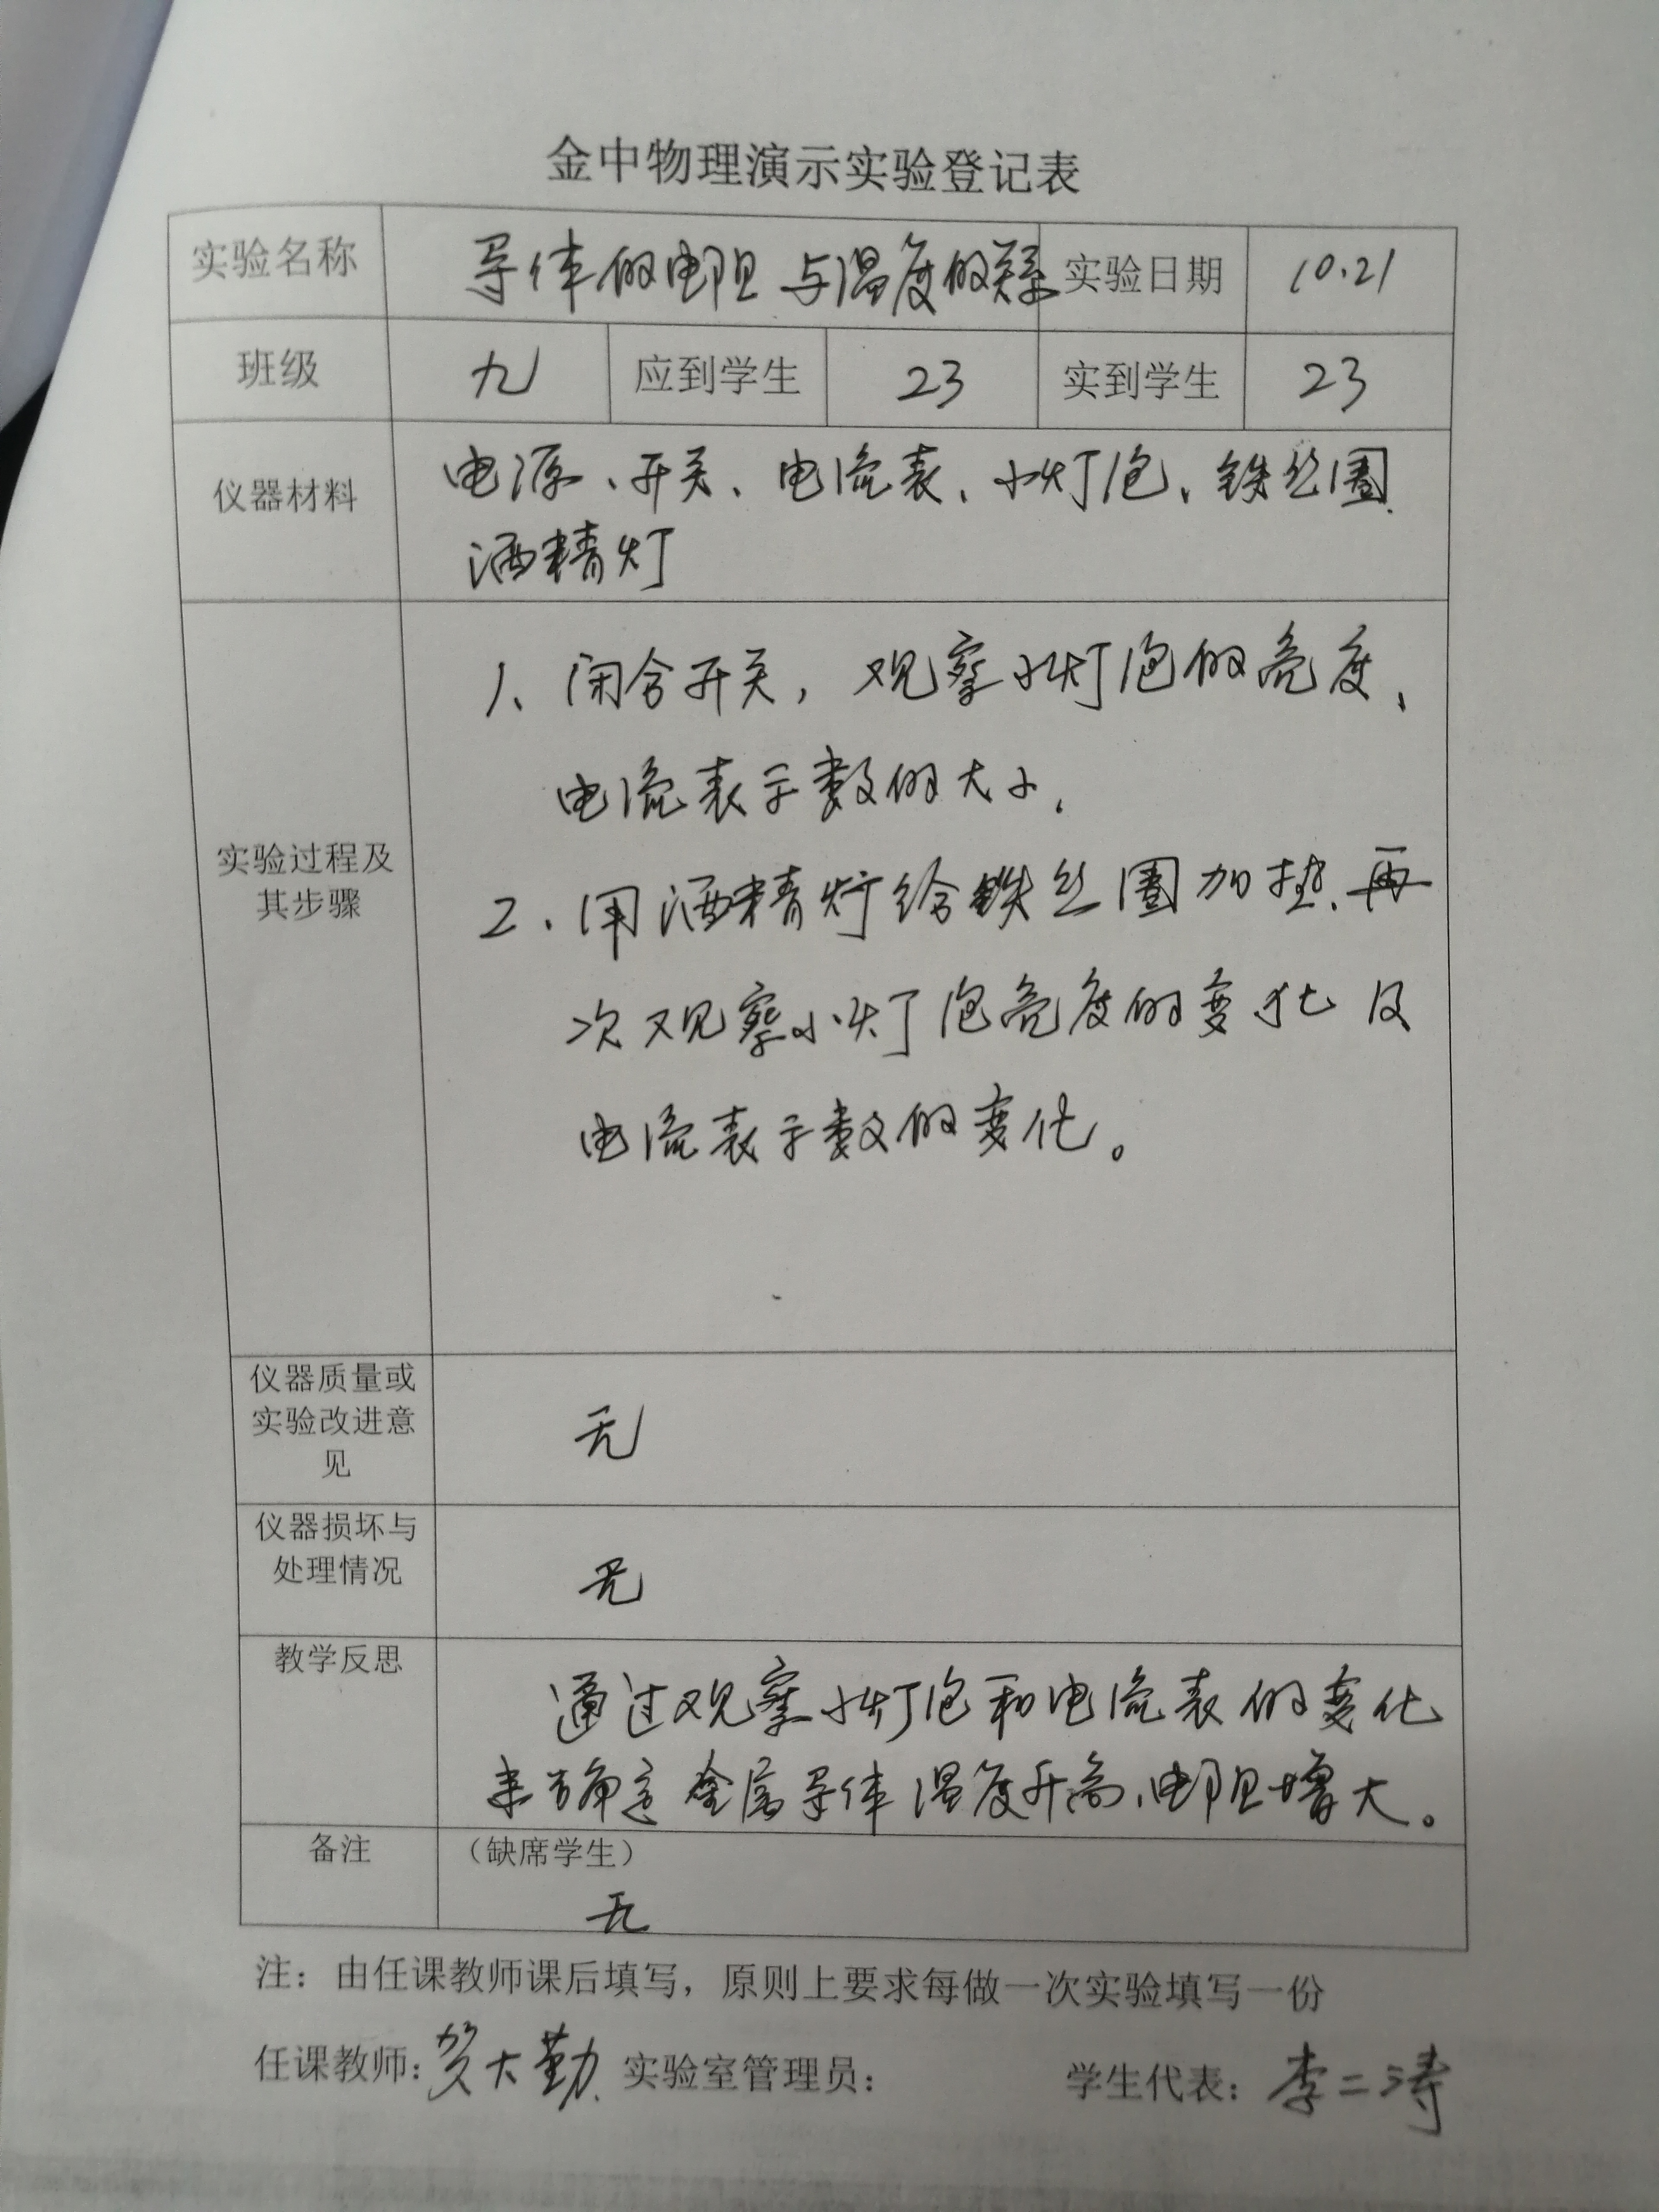 金中物理演示实验登记表
实验名称 导体的电阻与温度的关系 实验日期 10.21
班级 九 应到学生 23 实到学生 23
仪器材料 电源、开关、电流表、小灯泡、铁丝圈、
酒精灯
实验过程及
其步骤
1、闭合开关，观察小灯泡的亮度、
电流表示数的大小，
2、用酒精灯给铁丝圈加热，再
次观察小灯泡亮度的变化及
电流表示数的变化。
仪器质量或
实验改进意
见
无
仪器损坏与
处理情况
无
教学反思
通过观察小灯泡和电流表的变化
来确定金属导体温度升高，电阻增大。
备注 （缺席学生）
无
注：由任课教师课后填写，原则上要求每做一次实验填写一份
任课教师：贺大勤 实验室管理员： 学生代表：李二涛